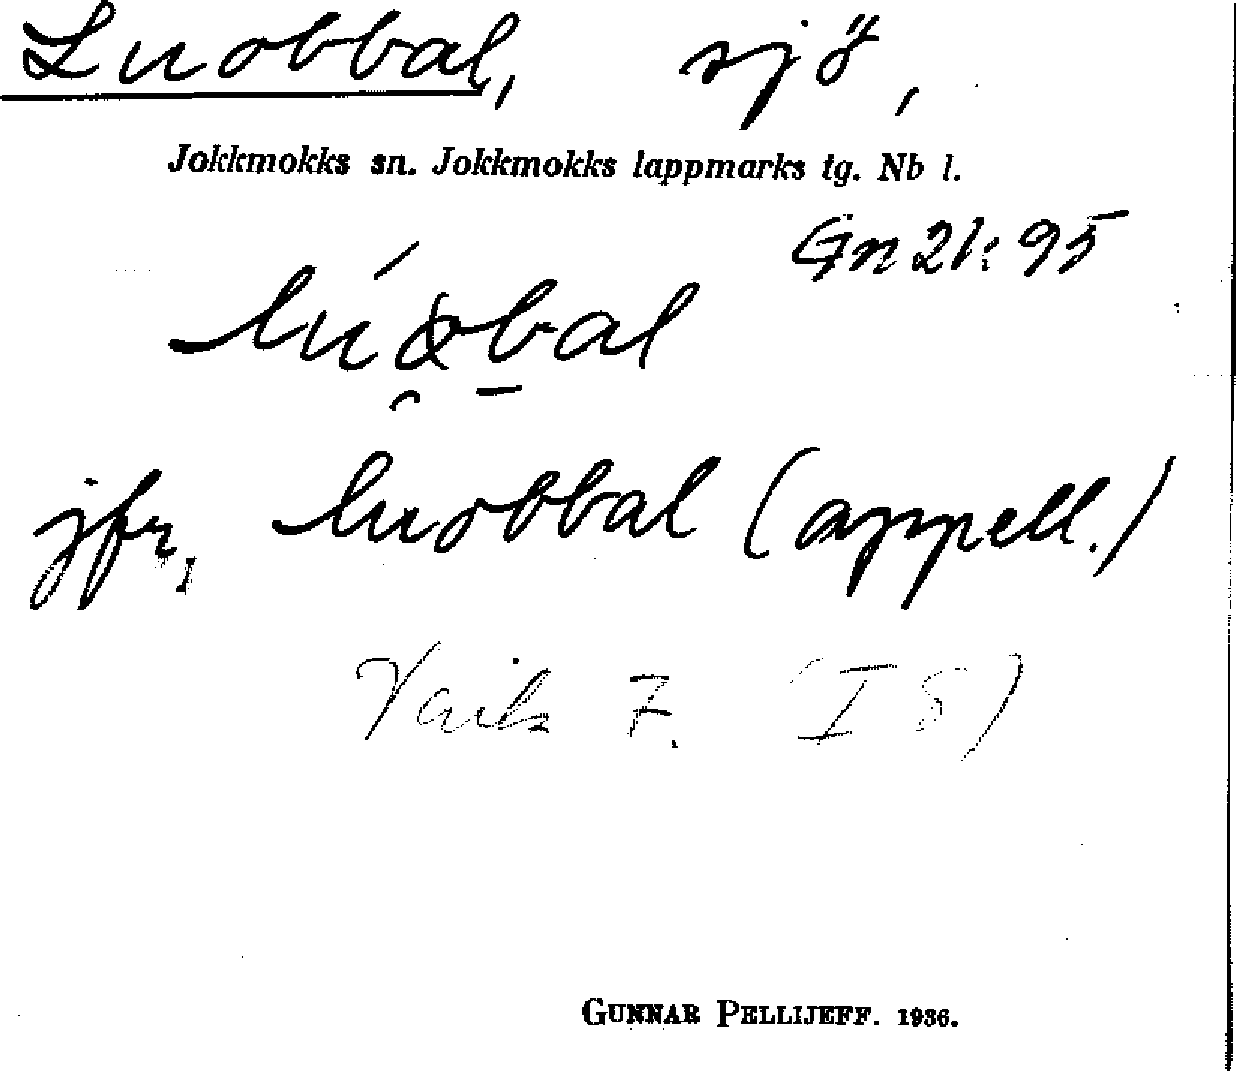 Luobbal, sjö,
Jokkmokks sn. Jokkmokks lappmarks tg. Nb l.
Gn 21: 95
jfr, luobbal (appell.)
7. (I 8)
GUNNAR PELLIJEFF. 1936.